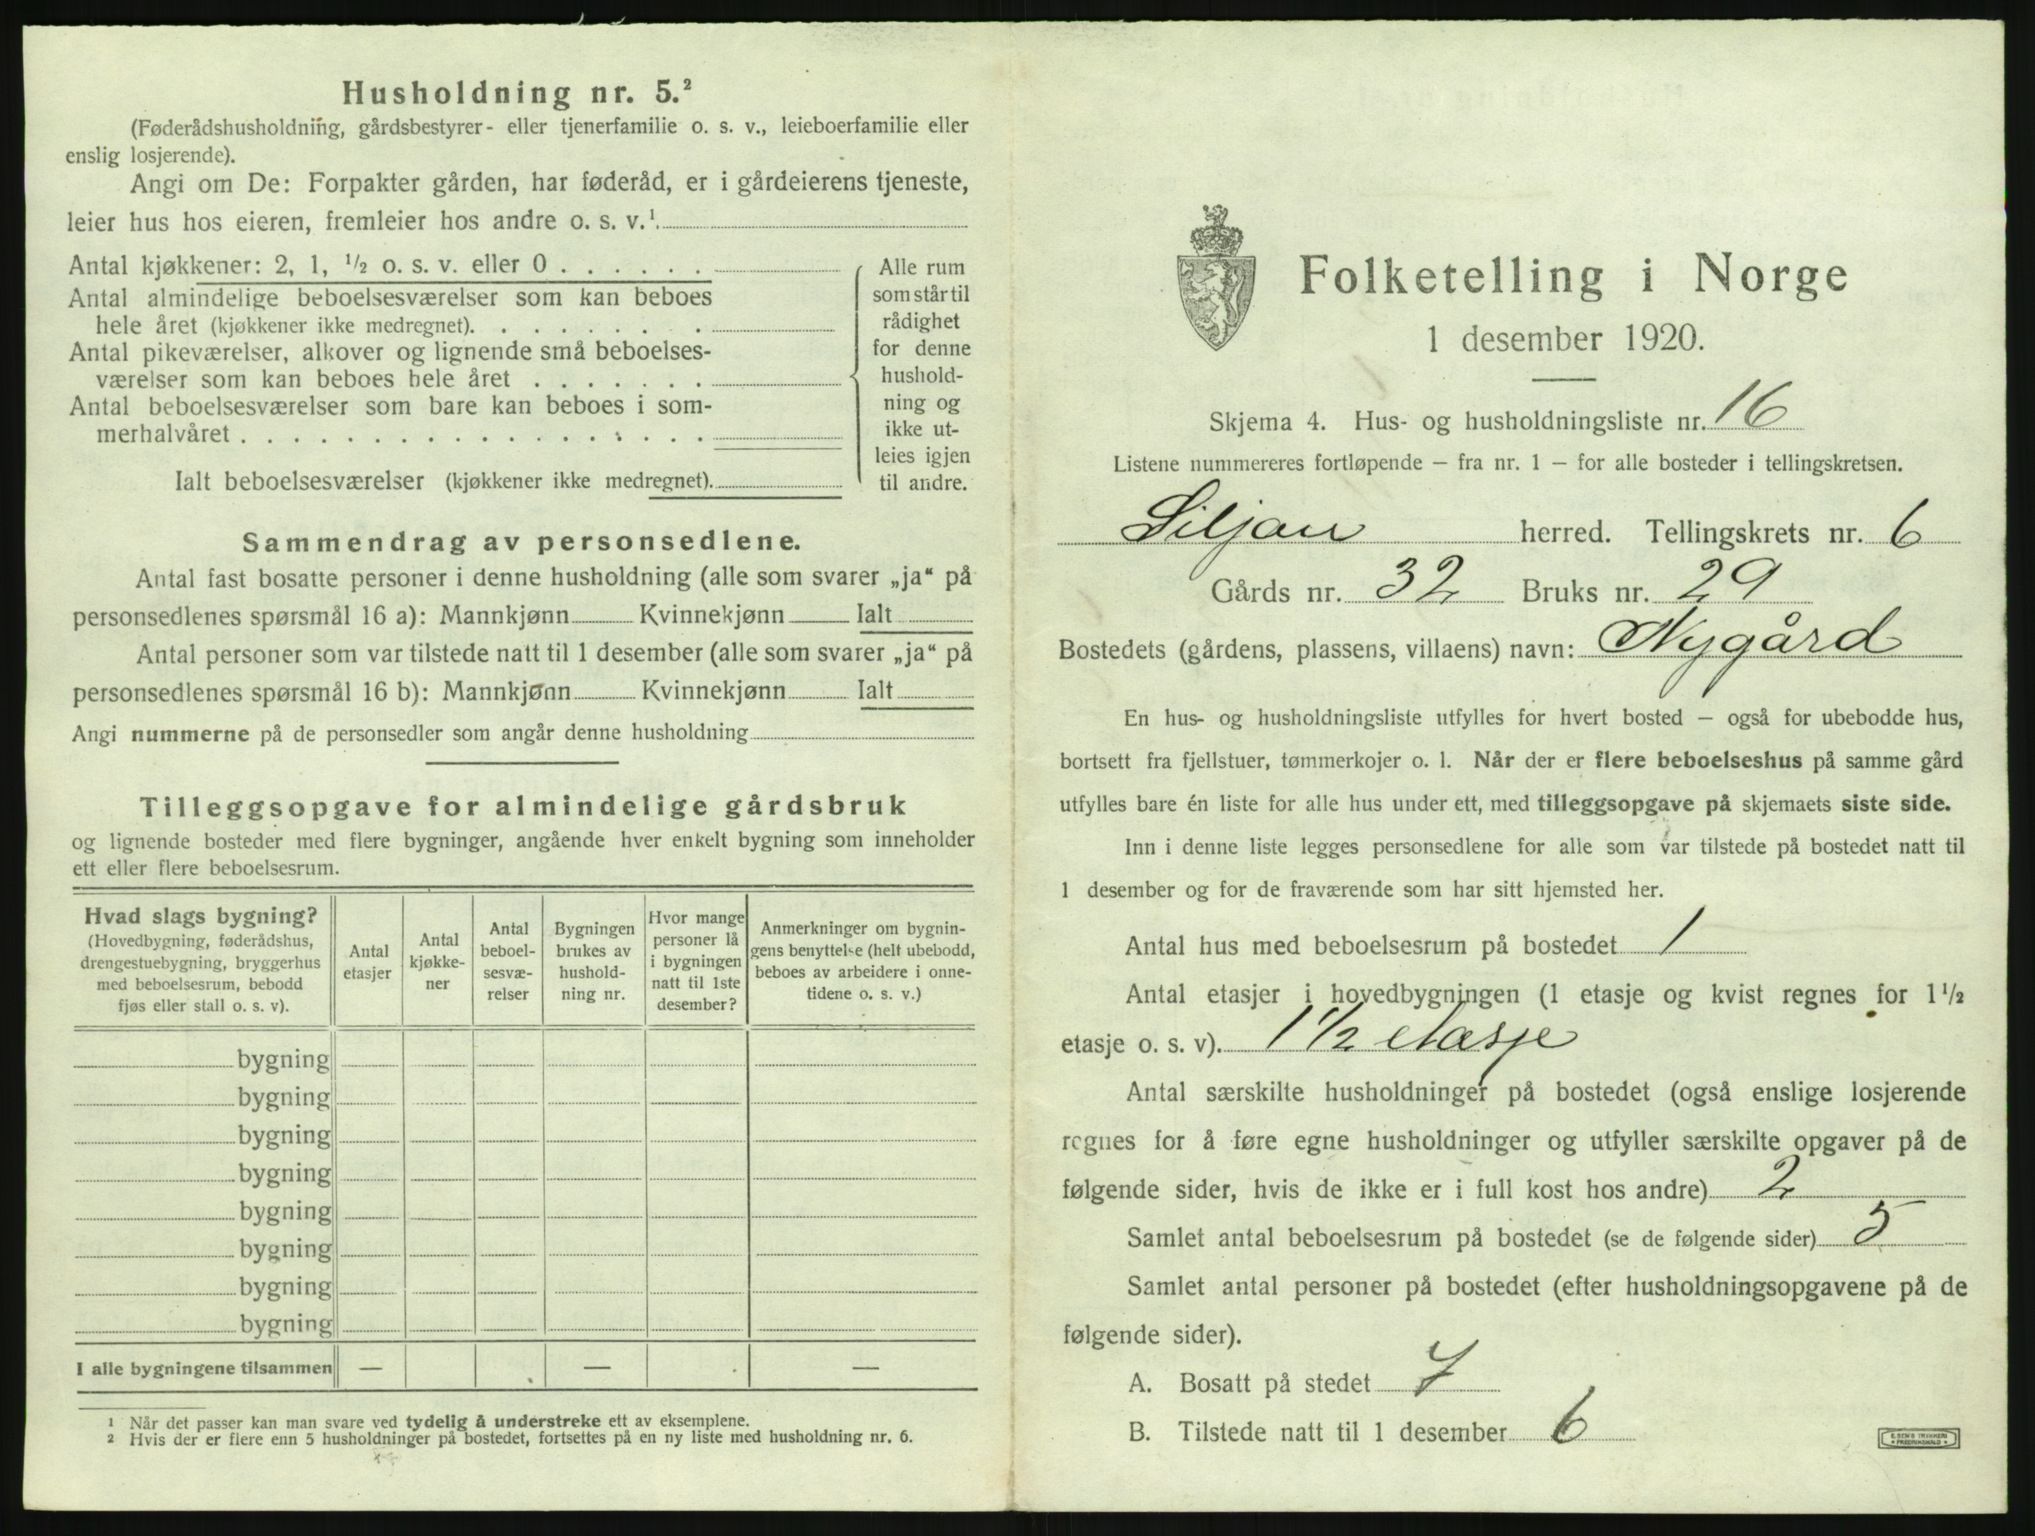 Husholdning nr. 5.²
(Føderådshusholdning, gårdsbestyrer- eller tjenerfamilie o. s. v., leieboerfamilie eller
enslig losjerende).
Angi om De: Forpakter gården, har føderåd, er i gårdeierens tjeneste,
leier hus hos eieren, fremleier hos andre o. s. v.¹
Antal kjøkkener: 2, 1, ½ o. s. v. eller 0 . . . . . .
Antal almindelige beboelsesværelser som kan beboes
hele året (kjøkkener ikke medregnet). . . . . . . .
Antal pikeværelser, alkover og lignende små beboelses-
værelser som kan beboes hele året . . . . . . .
Antal beboelsesværelser som bare kan beboes i som-
merhalvåret . . . . . . . . . . . . . . . . . .
Ialt beboelsesværelser (kjøkkener ikke medregnet).
Alle rum
som står til
rådighet
for denne
hushold-
ning og
ikke ut-
leies igjen
til andre.
Sammendrag av personsedlene.
Antal fast bosatte personer i denne husholdning (alle som svarer „ja“ på
personsedlenes spørsmål 16 a): Mannkjønn Kvinnekjønn Ialt
Antal personer som var tilstede natt til 1 desember (alle som svarer „ja“ på
personsedlenes spørsmål 16 b): Mannkjønn Kvinnekjønn Ialt
Angi nummerne på de personsedler som angår denne husholdning
Tilleggsopgave for almindelige gårdsbruk
og lignende bosteder med flere bygninger, angående hver enkelt bygning som inneholder
ett eller flere beboelsesrum.
Hvad slags bygning?
(Hovedbygning, føderådshus,
drengestuebygning, bryggerhus
med beboelsesrum, bebodd
fjøs eller stall o. s. v).
Antal
etasjer
Antal
kjøkke-
ner
Antal
beboel-
sesvæ-
relser
Bygningen
brukes av
hushold-
ning nr.
Hvor mange
personer lå
i bygningen
natt til 1ste
desember?
Anmerkninger om bygnin-
gens benyttelse (helt ubebodd,
beboes av arbeidere i onne-
tidene o. s. v.)
bygning
bygning
bygning
bygning
bygning
bygning
bygning
bygning
I alle bygningene tilsammen — — —
¹ Når det passer kan man svare ved tydelig å understreke ett av eksemplene.
² Hvis der er flere enn 5 husholdninger på bostedet, fortsettes på en ny liste med husholdning nr. 6.
Folketelling i Norge
1 desember 1920.
Skjema 4. Hus- og husholdningsliste nr. 16
Listene nummereres fortløpende — fra nr. 1 — for alle bosteder i tellingskretsen.
Siljan herred. Tellingskrets nr. 6
Gårds nr. 32 Bruks nr. 29
Bostedets (gårdens, plassens, villaens) navn: Nygård
En hus- og husholdningsliste utfylles for hvert bosted — også for ubebodde hus,
bortsett fra fjellstuer, tømmerkojer o. l. Når der er flere beboelseshus på samme gård
utfylles bare én liste for alle hus under ett, med tilleggsopgave på skjemaets siste side.
Inn i denne liste legges personsedlene for alle som var tilstede på bostedet natt til
1 desember og for de fraværende som har sitt hjemsted her.
Antal hus med beboelsesrum på bostedet 1
Antal etasjer i hovedbygningen (1 etasje og kvist regnes for 1½
etasje o. s. v). 1½ etasje
Antal særskilte husholdninger på bostedet (også enslige losjerende
regnes for å føre egne husholdninger og utfyller særskilte opgaver på de
følgende sider, hvis de ikke er i full kost hos andre) 2
Samlet antal beboelsesrum på bostedet (se de følgende sider) 5
Samlet antal personer på bostedet (efter husholdningsopgavene på de
følgende sider).
A. Bosatt på stedet 7
B. Tilstede natt til 1 desember 6